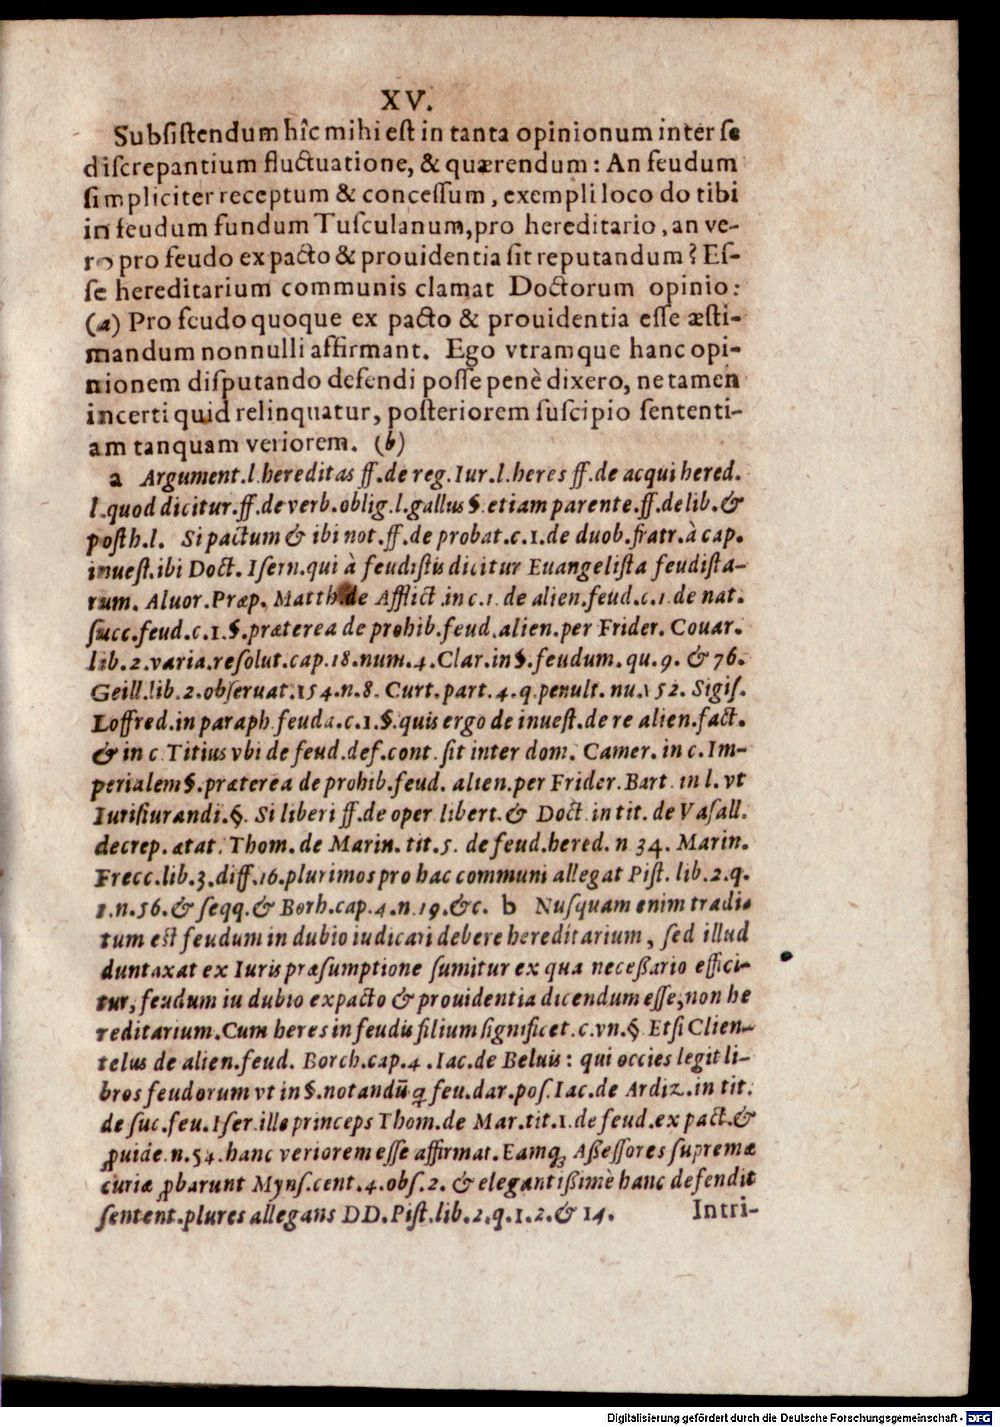 XV.
Subsistendum hîc mihi est in tanta opinionum inter se
discrepantium fluctuatione, & quærendum: An feudum
simpliciter receptum & concessum, exempli loco do tibi
in feudum fundum Tusculanum, pro hereditario, an ve-
ro pro feudo ex pacto & prouidentia sit reputandum? Es-
se hereditarium communis clamat Doctorum opinio:
(a) Pro feudo quoque ex pacto & prouidentia esse æsti-
mandum nonnulli affirmant. Ego vtramque hanc opi-
nionem disputando defendi posse penè dixero, ne tamen
incerti quid relinquatur, posteriorem suscipio sententi-
am tanquam veriorem. (b)
a Argument.l.hereditas ff.de reg.Iur.l.heres ff.de acqui hered.
l.quod dicitur.ff.de verb.oblig.l.gallus §.etiam parente.ff.de lib.&
posth.l. Si pactum & ibi not.ff.de probat.c.1.de duob.fratr.à cap.
inuest.ibi Doct. Isern.qui à feudistis dicitur Euangelista feudista-
rum. Aluor.Præp. Matth.de Afflict.in c.1.de alien.feud.c.1.de nat.
succ.feud.c.1.§.præterea de prohib.feud.alien.per Frider. Couar.
lib.2.varia.resolut.cap.18.num.4.Clar.in §.feudum.qu.9.& 76.
Geill.lib.2.obseruat.154.n.8. Curt.part.4.q.penult.nu.152. Sigis.
Loffred.in paraph.feuda.c.1.§.quis ergo de inuest.de re alien.fact.
& in c.Titius vbi de feud.def.cont.sit inter dom. Camer.in c.Im-
perialem §.præterea de prohib.feud. alien.per Frider.Bart in l.vt
Iurisiurandi.§. Si liberi ff.de oper libert.& Doct.in tit.de Vasall.
decrep.ætat. Thom.de Marin.tit.5. de feud.hered.n 34. Marin.
Frecc.lib.3.diff.16.plurimos pro hac communi allegat Pist. lib.2.q.
1.n.56.& seqq.& Borh.cap.4.n.19.&c. b Nusquam enim tradi-
tum est feudum in dubio iudicari debere hereditarium, sed illud
duntaxat ex Iuris præsumptione sumitur ex qua necessario effici-
tur, feudum iu dubio ex pacto & prouidentia dicendum esse, non he
reditarium.Cum heres in feudis filium significet.c.vn.§.Etsi Clien-
telus de alien.feud. Borch.cap.4.Iac.de Beluis: qui occies legit li-
bros feudorum vt in §.notandū q̃ feu.dar.pos.Iac.de Ardiz.in tit.
de suc.feu.Iser.ille princeps Thom.de Mar.tit.1.de feud.ex pact.&
ꝓuide.n.54.hanc veriorem esse affirmat.Eamq; Assessores supremæ
curiæ ꝓbarunt Myns.cent.4.obs.2. & elegantissimè hanc defendit
sentent.plures allegans DD.Pist.lib.2.q.1.2.& 14. Intri-
Digitalisierung gefördert durch die Deutsche Forschungsgemeinschaft - DFG